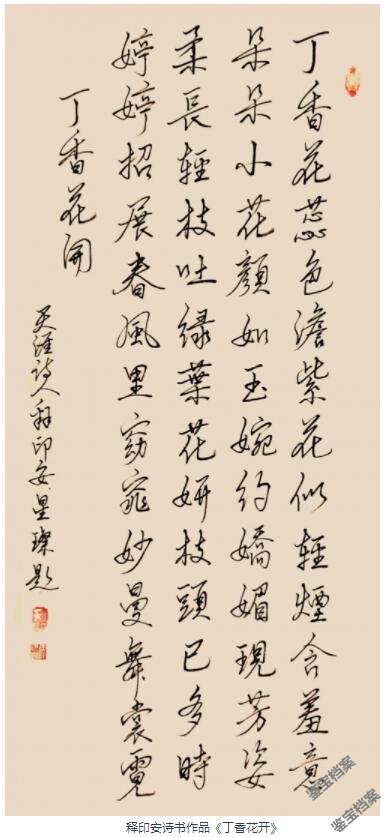 丁香花蕊色澹紫花似輕煙含羞意
朵朵小花顏如玉婉約嬌媚現芳姿
柔長輕枝吐绿葉花妍枝頭已多時
婷婷招展春風里窈窕妙曼舞裳霓
丁香花開
天涯诗人释印安星璨題
鉴宝档案
鉴宝档案
释印安诗书作品《丁香花开》